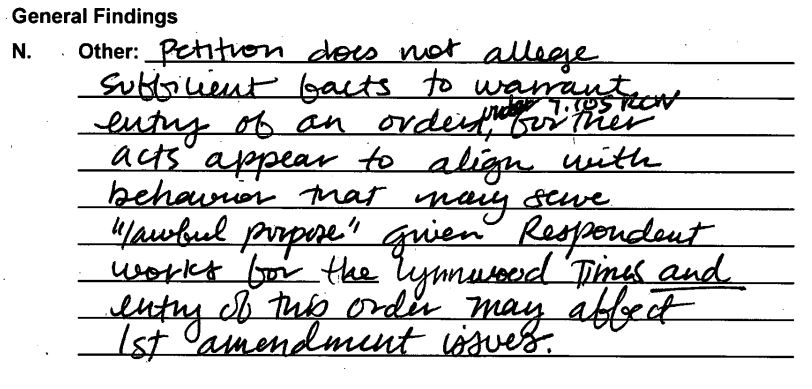 General Findings
N. Other: Petition does not allege
sufficient facts to warrant
entry of an order, under 7.105 RCW further
acts appear to align with
behavior that may serve
"lawful purpose" given Respondent
works for the Lynnwood Times and
entry of this order may affect
1st amendment issues.